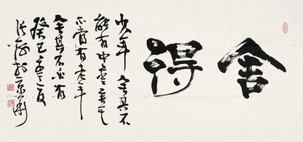 舍得
少年舍其不
能有中年舍其
不當有老年
舍其不必有
癸巳